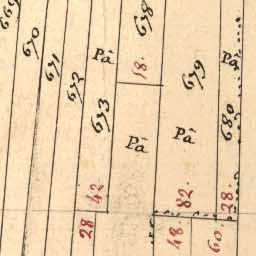 669
670
671
672
673
Pâ
42
28
678
18.
Pâ
679
Pâ
82.
48
680
Pâ
28.
60.